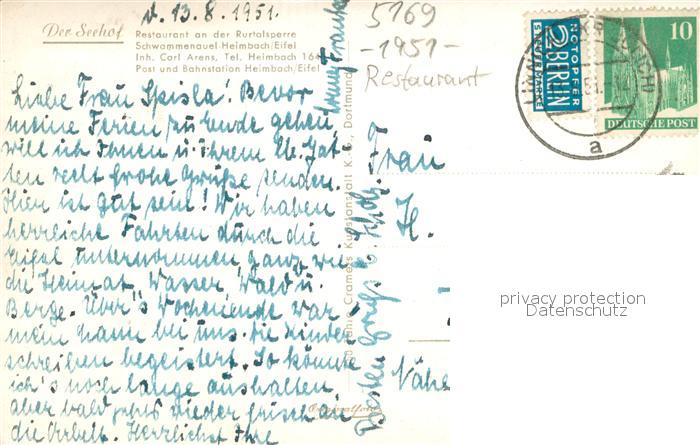 d. 13. 8. 1951.
Der Seehof
Restaurant an der Rurtalsperre
Schwammenauel-Heimbach/Eifel
Inh. Carl Arens, Tel. Heimbach 164
Post und Bahnstation Heimbach/Eifel
Liebe Frau Spisla! Bevor
meine Ferien zu Ende gehen,
will ich Ihnen u. Ihrem lb. Gat-
ten recht frohe Grüße senden.
Hier ist gut sein! Wir haben
herrliche Fahrten durch die
Eifel unternommen ganz wie
die Heimat Wasser Wald u.
Berge. Über's Wochenende war
mein Mann bei uns. Die Kinder
schreiben begeistert. So könnte
ich's noch lange aushalten
aber bald geht's wieder frisch an
die Arbeit. Herzlichst Ihre
5169
-1951-
Restaurant
Frau
H.
Nähe
Besten Gruß
Cramers Kunstanstalt K.G., Dortmund
NOTOPFER
2 BERLIN
STEUERMARKE
10
DEUTSCHE POST
a
privacy protection
Datenschutz